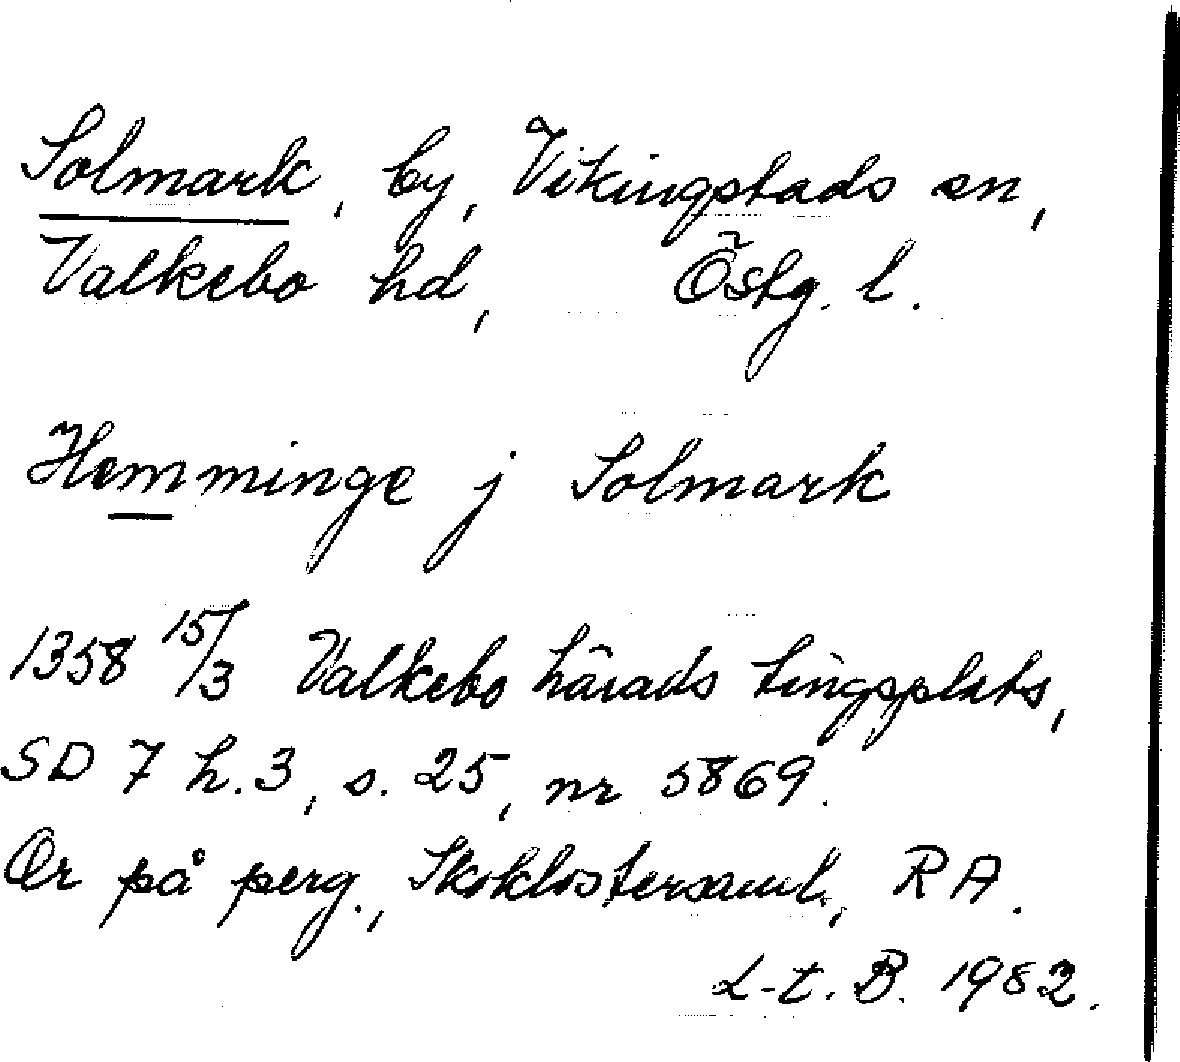 Solmark, by, Vikingstads sn,
Valkebo hd, Östg. l.
Hemminge j Solmark
1358 15/3 Valkebo härads tingsplats,
SD 7 h. 3, s. 25, nr 5869.
Or på perg., Skoklostersaml., RA.
L-t. B. 1982.